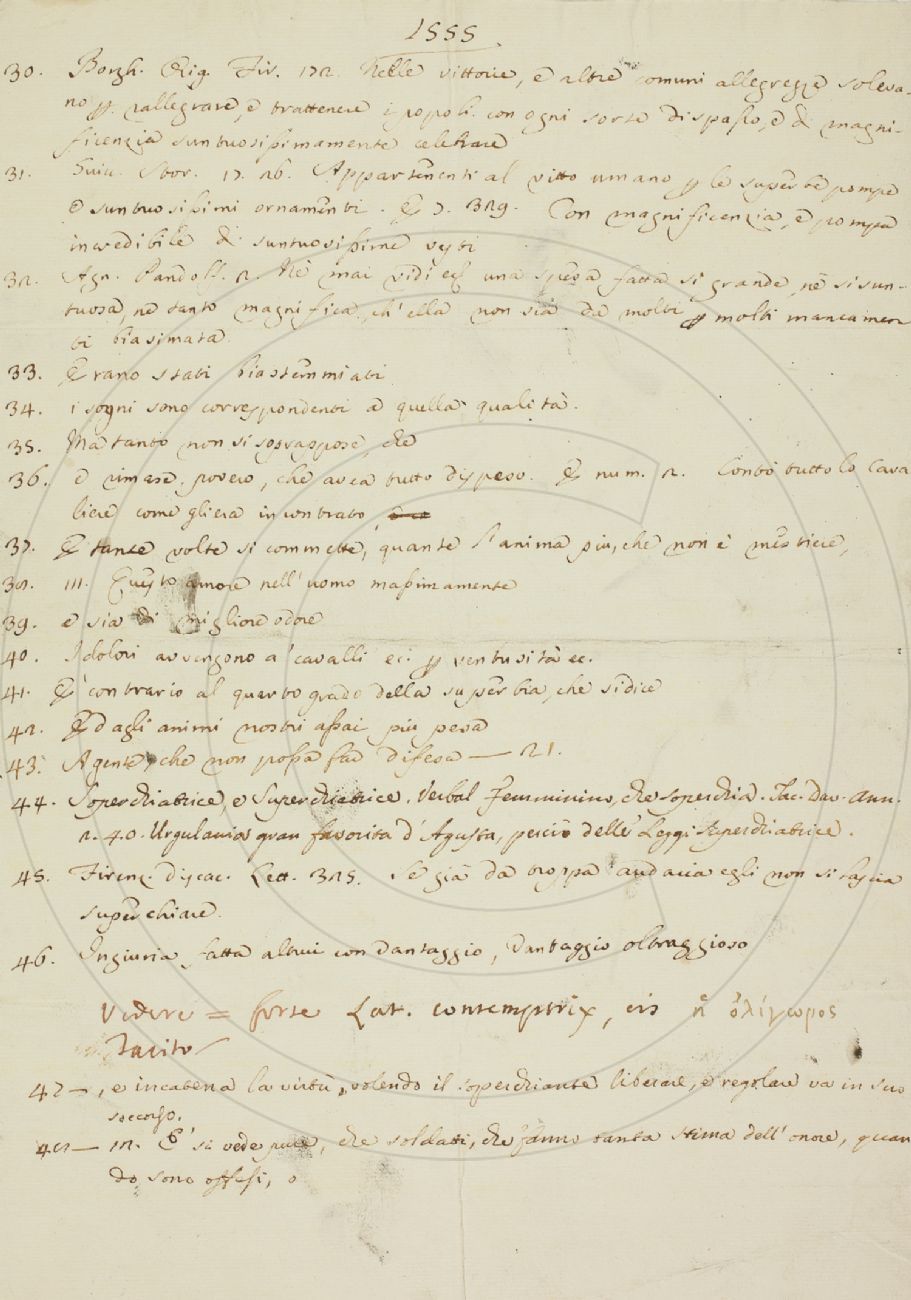 1555
30. Borgh. Orig. Fir. 172. Nelle vittorie, e altre comuni allegrezze soleva-
no p. rallegrare, e trattenere i popoli con ogni sorte di spasso, e di magni-
ficenzia suntuosissimamente celebrare
31. Guic. Stor. 17. 26. Appartenenti al vitto umano p le superbe pompe
e suntuosissimi ornamenti. E 7. 329. Con magnificenzia, e pompa
incredibile di suntuosissime vesti
32. Agn. Pandolf. 2. Nè mai vidi ec. una spesa fatta si grande, nè si sun-
tuosa, nè tanto magnifica, ch'ella non sia da molti p molti mancamen
ti biasimata.
33. Erano stati biastemmiati
34. i sogni sono correspondenti a quella qualità.
35. Ma tanto non si soprappose, che
36. e rimase povero, che avea tutto dispeso. E num. 2. Contò tutto lo Cava
liere come gliera incontrato
37. E tante volte si commette, quante l'anima più, che non è mestiere,
38. III. Questo amore nell'uomo massimamente
39. e sia di migliore odore
40. I dolori avvengono a' cavalli ec. p ventusità ec.
41. E' contrario al quarto grado della superbia, che si dice
42. E dagli animi nostri assai più pesa
43. Agente, che non possa far difesa — 21.
44. Soperchiatrice, e Superchiatrice. Verbal Femminino, che soperchia. Tac. Dav. Ann.
2. 40. Urgulania gran favorita d'Agusta, perciò delle Leggi Soperchiatrice.
45. Firenz. discac. Lett. 325. Se già da troppa audacia egli non si lascia
superchiare.
46. Ingiuria fatta altrui con vantaggio, vantaggio oltraggioso
Vedere = forse Lat. contemptrix, cis ἡ ὀλίγωρος
Tacito
47 —, e incatena la virtù, volendo il soperchiante liberare, e regolare va in suo
soccorso.
48 — 12. E' si vede pure, che soldati, che fanno tanta stima dell'onore, quan
do sono offesi, o